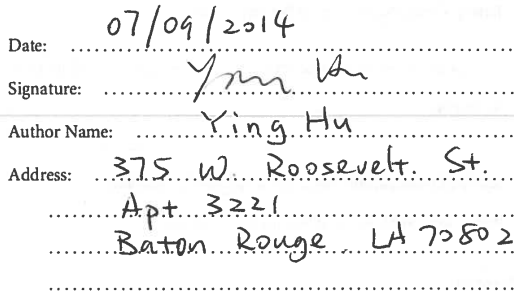 Date: 07/09/2014
Signature: Ying Hu
Author Name: Ying Hu
Address: 375 W. Roosevelt. St.
Apt 3221
Baton Rouge LA 70802